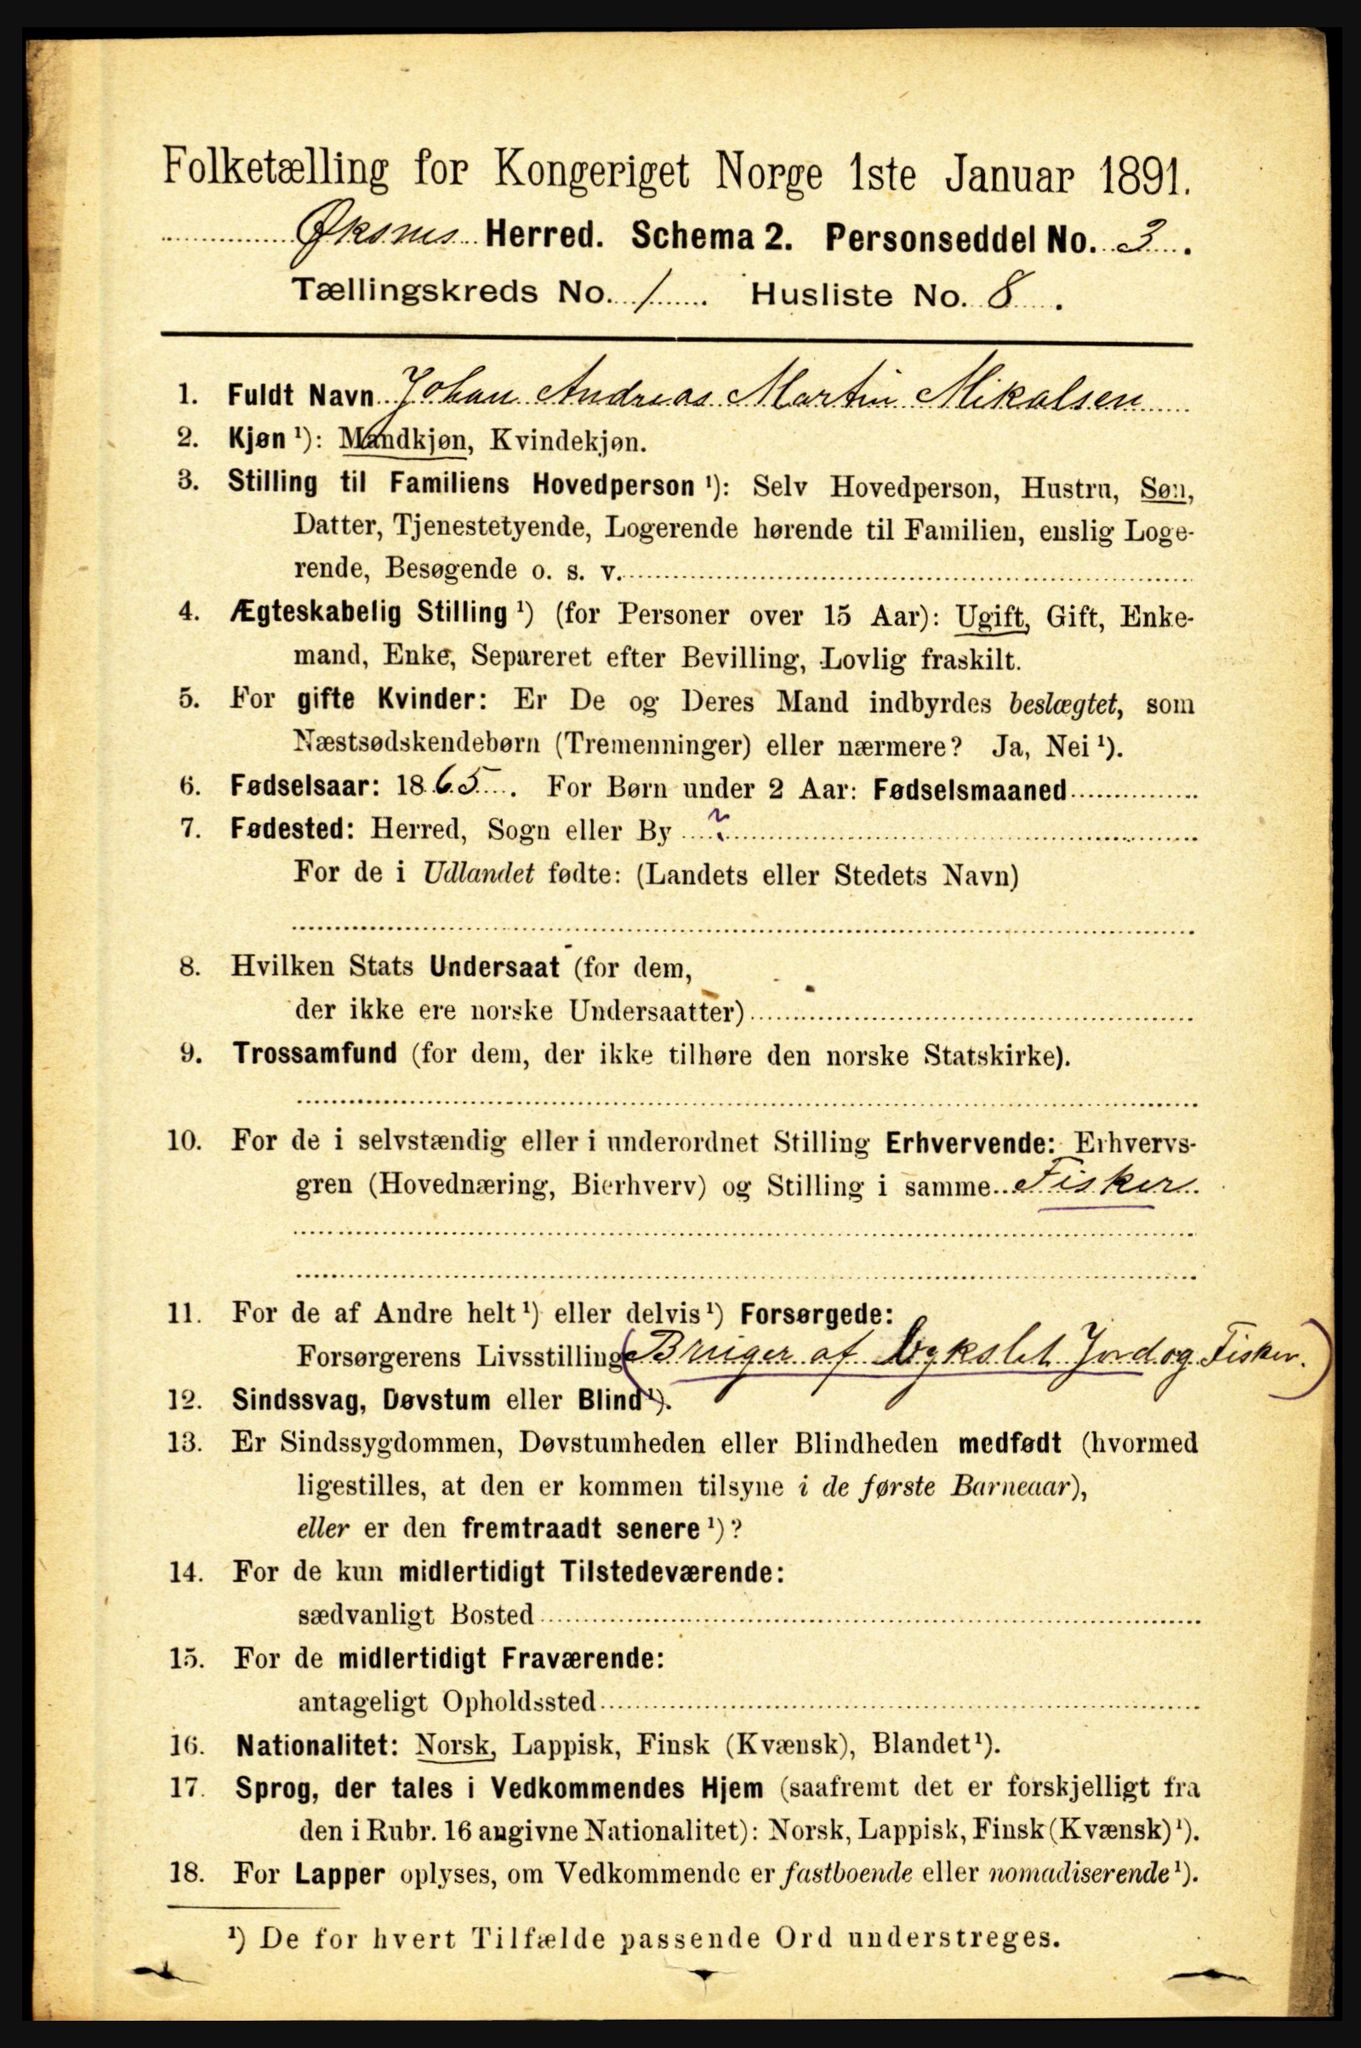 Folketælling for Kongeriget Norge 1ste Januar 1891.
Øksnes Herred. Schema 2. Personseddel No. 3.
Tællingskreds No. 1 Husliste No. 8.
1. Fuldt Navn Johan Andreas Martin Mikalsen
2. Kjøn ¹): Mandkjøn, Kvindekjøn.
3. Stilling til Familiens Hovedperson ¹): Selv Hovedperson, Hustru, Søn,
Datter, Tjenestetyende, Logerende hørende til Familien, enslig Loge-
rende, Besøgende o. s. v.
4. Ægteskabelig Stilling ¹) (for Personer over 15 Aar): Ugift, Gift, Enke-
mand, Enke, Separeret efter Bevilling, Lovlig fraskilt.
5. For gifte Kvinder: Er De og Deres Mand indbyrdes beslægtet, som
Næstsødskendebørn (Tremenninger) eller nærmere? Ja, Nei ¹).
6. Fødselsaar: 1865. For Børn under 2 Aar: Fødselsmaaned
7. Fødested: Herred, Sogn eller By ?
For de i Udlandet fødte: (Landets eller Stedets Navn)
8. Hvilken Stats Undersaat (for dem,
der ikke ere norske Undersaatter)
9. Trossamfund (for dem, der ikke tilhøre den norske Statskirke).
10. For de i selvstændig eller i underordnet Stilling Erhvervende: Erhvervs-
gren (Hovednæring, Bierhverv) og Stilling i samme Fisker
11. For de af Andre helt ¹) eller delvis ¹) Forsørgede:
Forsørgerens Livsstilling (Bruger af bykslet Jord og Fisker.)
12. Sindssvag, Døvstum eller Blind ¹).
13. Er Sindssygdommen, Døvstumheden eller Blindheden medfødt (hvormed
ligestilles, at den er kommen tilsyne i de første Barneaar),
eller er den fremtraadt senere ¹)?
14. For de kun midlertidigt Tilstedeværende:
sædvanligt Bosted
15. For de midlertidigt Fraværende:
antageligt Opholdssted
16. Nationalitet: Norsk, Lappisk, Finsk (Kvænsk), Blandet ¹).
17. Sprog, der tales i Vedkommendes Hjem (saafremt det er forskjelligt fra
den i Rubr. 16 angivne Nationalitet): Norsk, Lappisk, Finsk (Kvænsk) ¹).
18. For Lapper oplyses, om Vedkommende er fastboende eller nomadiserende ¹).
¹) De for hvert Tilfælde passende Ord understreges.